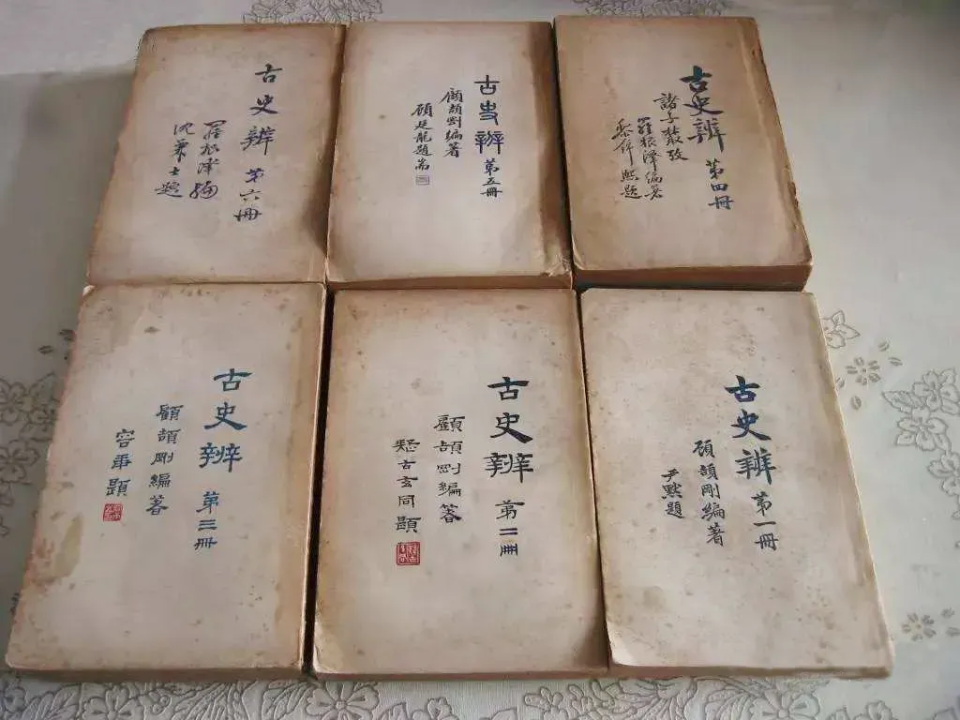 古史辨 第六冊
羅根澤編
沈兼士題
古史辨 第五冊
顧頡剛編著
顧廷龍題耑
古史辨 第四冊
諸子叢攷
羅根澤編著
黎錦熙題
古史辨 第三冊
顧頡剛編著
容庚題
古史辨 第二冊
顧頡剛編著
疑古玄同題
古史辨 第一冊
顧頡剛編著
尹默題